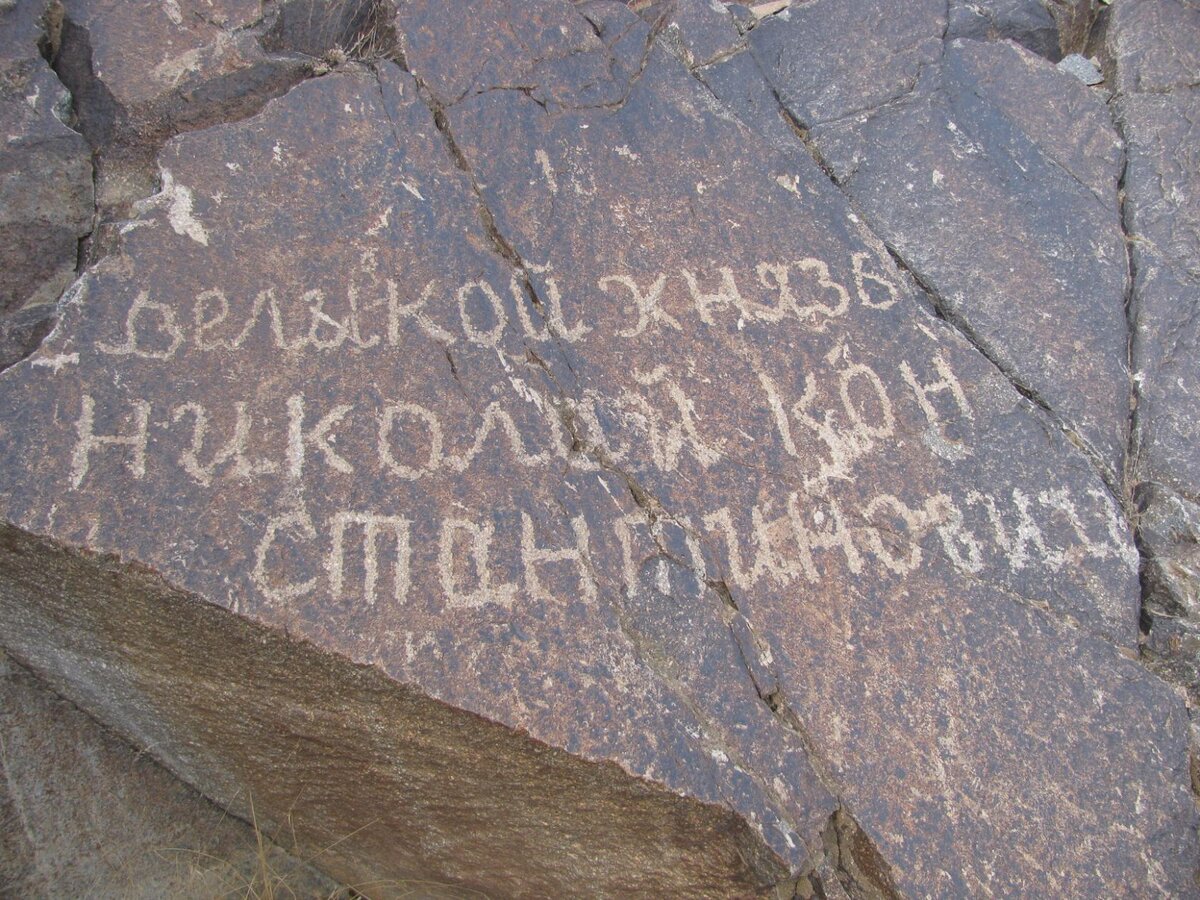 Велыкой князь
николай кон
стантиновиц